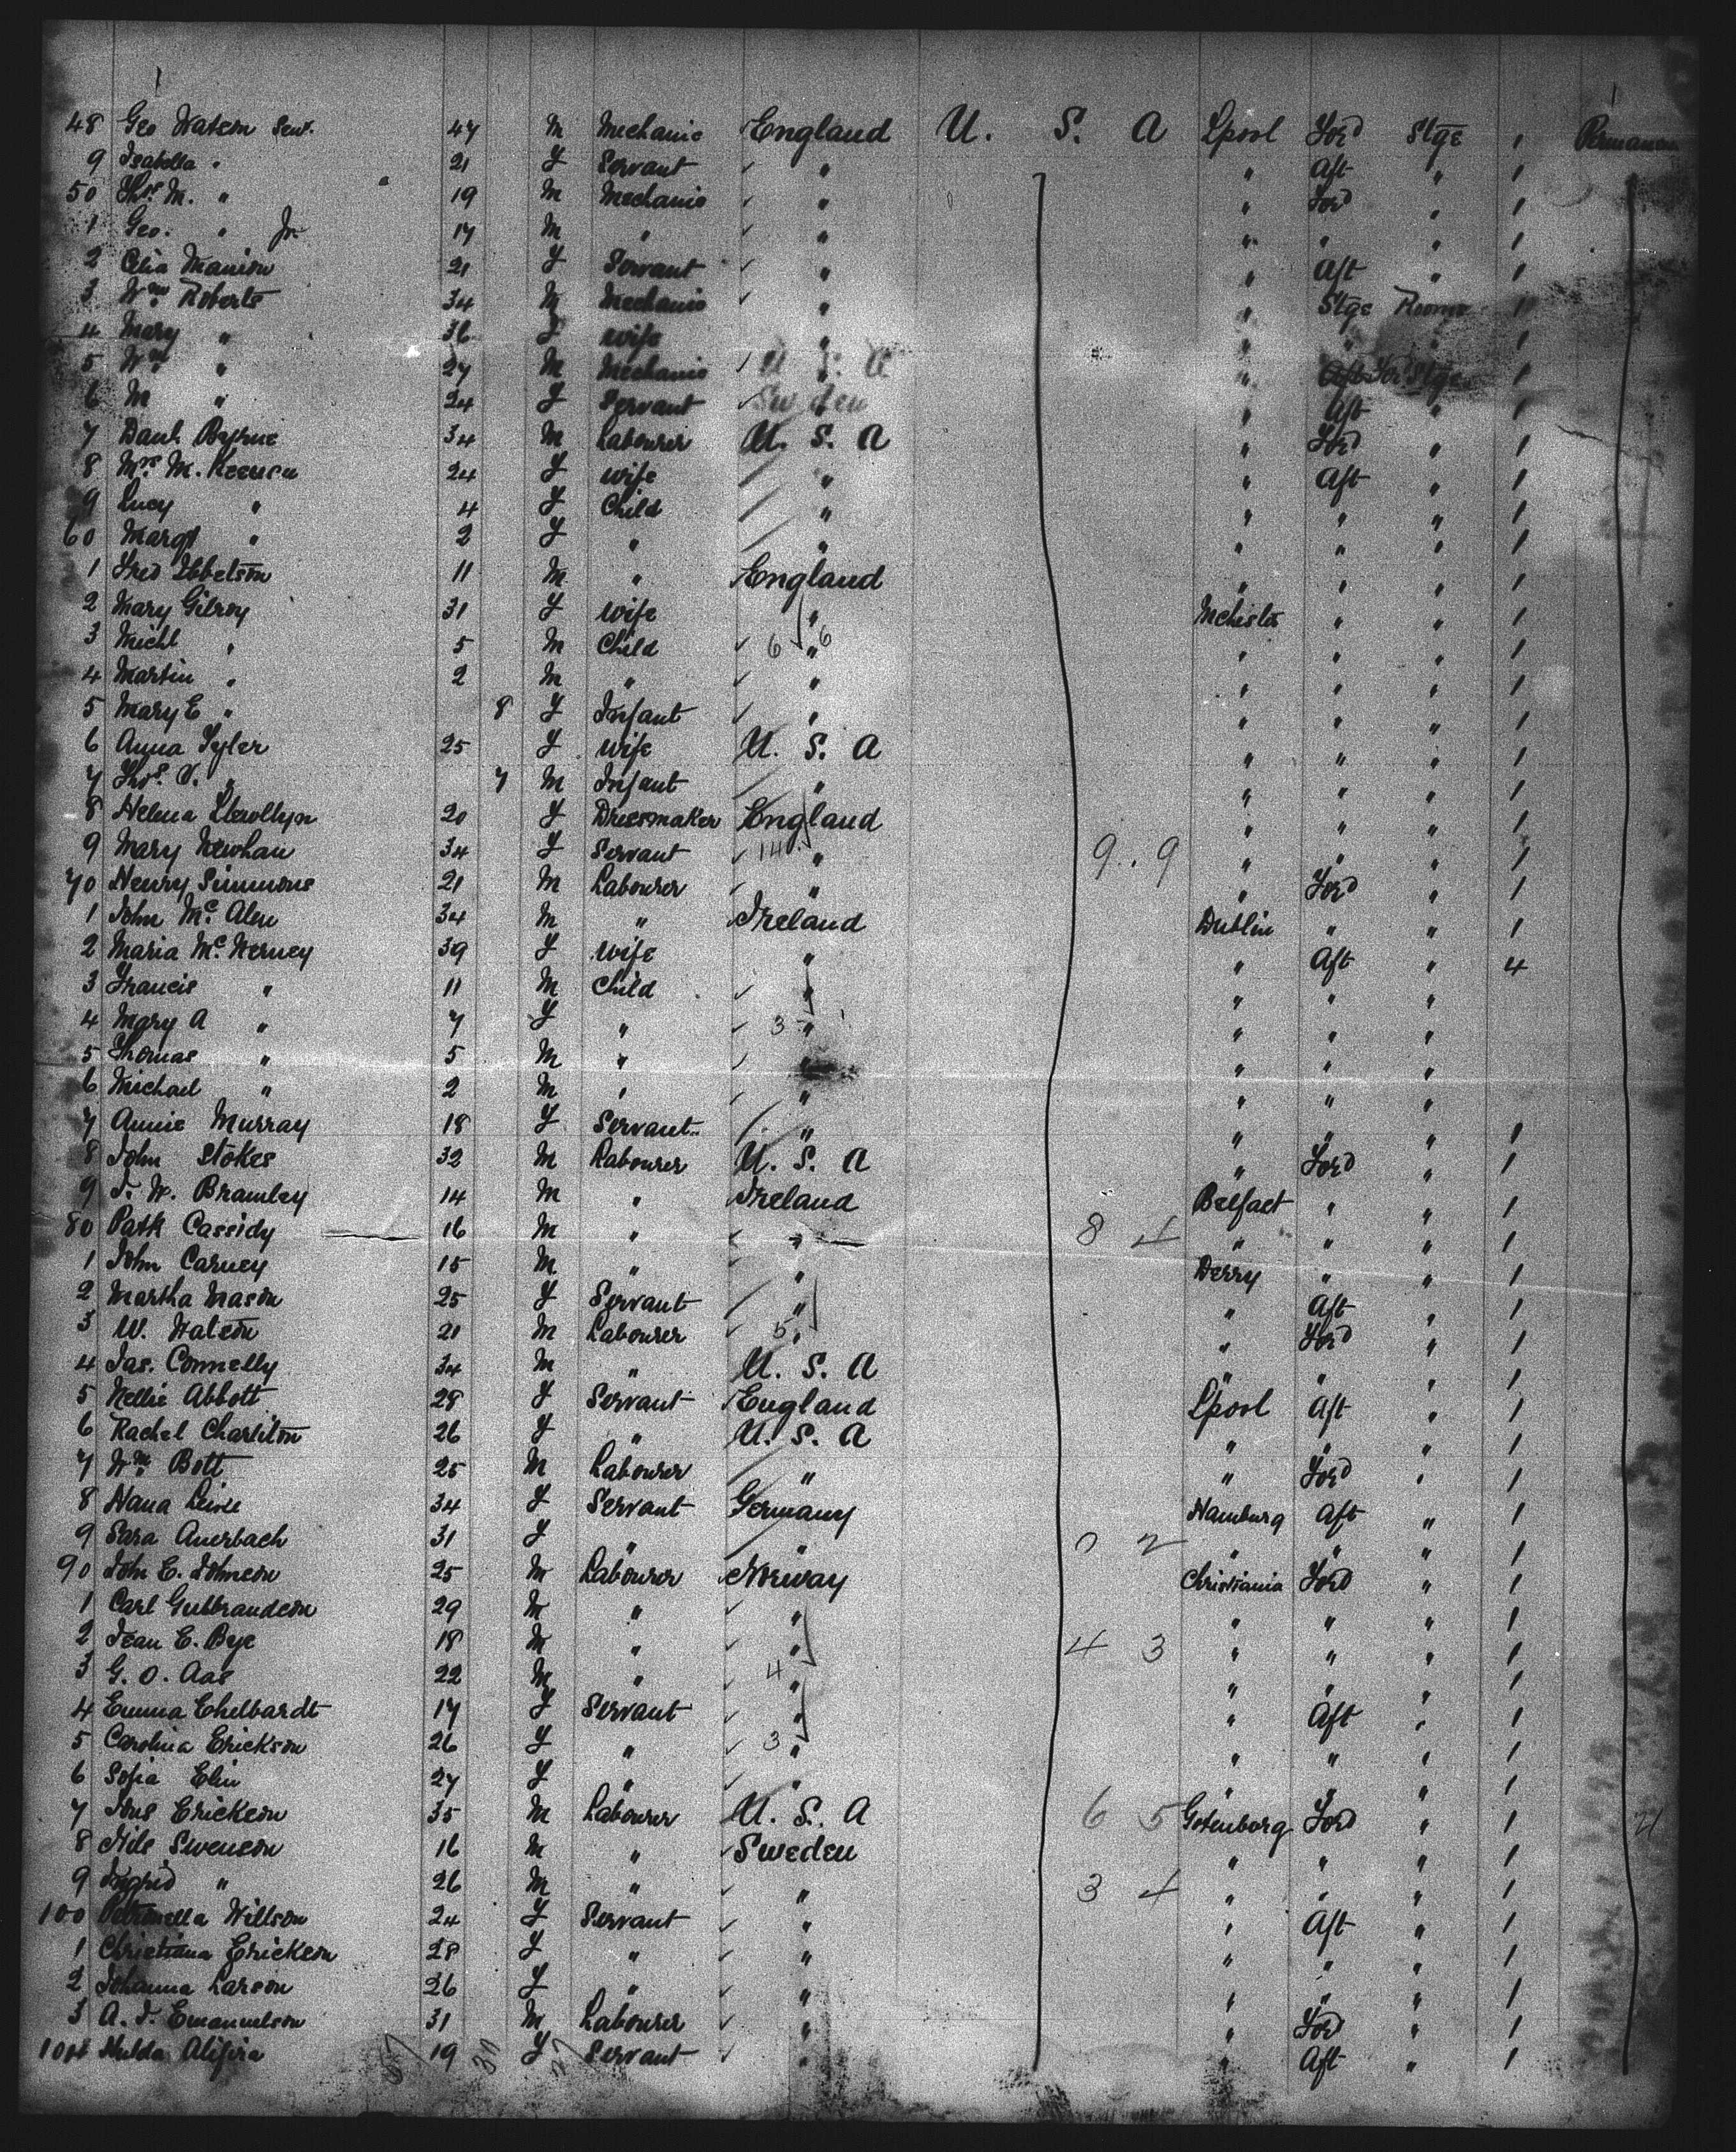 48 Geo Watson Senr. 47 M Mechanic England U. S. A Lpool Ford Stge 1 Permanen
9 Isabella " 21 F Servant " " Aft " 1
50 Thos. M. " 19 M Mechanic " " Ford " 1
1 Geo. " Jr. 17 M " " " " " 1
2 Celia Manion 21 F Servant " " Aft " 1
3 Wm Roberts 34 M Mechanic " " Stge Rooms 1
4 Mary " 36 F Wife " " " " 1
5 Wm " 27 M Mechanic " " Stge 1
6 M " 24 F Servant " " Aft " 1
7 Danl. Byrne 34 M Labourer U. S. A " Ford " 1
8 Mrs. M. Keenan 24 F Wife " " Aft " 1
9 Lucy " 4 F Child " " " " 1
60 Margt " 2 F " " " " " 1
1 Fred Ibbetson 11 M " England " " " 1
2 Mary Gilroy 31 F Wife " Mchester " " 1
3 Michl " 5 M Child 6 " 6 " " " 1
4 Martin " 2 M " " " " " 1
5 Mary E " 8 F Infant " " " " 1
6 Anna Tyler 25 F Wife U. S. A " " " 1
7 Thos. V. " 7 M Infant " " " " 1
8 Helena Llewllyn 20 F Dressmaker England " " " 1
9 Mary Newhan 34 F Servant 14 " 9 . . 9 " " " 1
70 Henry Simmons 21 M Labourer " " Ford " 1
1 John Mc. Alen 34 M " Ireland Dublin " " 1
2 Maria Mc. Nerney 39 F Wife " " Aft " 4
3 Francis " 11 M Child " " " "
4 Mary A " 7 F " 3 " " " "
5 Thomas " 5 M " " " " "
6 Michael " 2 M " " " " "
7 Annie Murray 18 F Servant " " " " 1
8 John Stokes 32 M Labourer U. S. A " Ford " 1
9 J. W. Bramley 14 M " Ireland Belfast " " 1
80 Patk Cassidy 16 M " " 8 4 " " " 1
1 John Carney 15 M " " Derry " " 1
2 Martha Mason 25 F Servant " " Aft " 1
3 W. Watson 21 M Labourer 5 " " Ford " 1
4 Jas. Connelly 34 M " U. S. A " " " 1
5 Nellie Abbott 28 F Servant England Lpool Aft " 1
6 Rachel Charlton 26 F " U. S. A " " " 1
7 Wm. Bott 25 M Labourer " " Ford " 1
8 Hana Leive 34 F Servant Germany Hamburg Aft " 1
9 Sara Auerbach 31 F " " 0 2 " " " 1
90 John E. Johnson 25 M Labourer Norway Christiania Ford " 1
1 Carl Gulbrandson 29 M " " " " " 1
2 Jean E. Bye 18 M " " 4 3 " " " 1
3 G. O. Aas 22 M " 4 " " " " 1
4 Emma Ehelbardt 17 F Servant " " Aft " 1
5 Carolina Erickson 26 F " 3 " " " " 1
6 Sofia Elin 27 F " " " " " 1
7 Jons Erickson 35 M Labourer U. S. A 6 5 Gotenborg Ford " 1 21
8 Nils Swenson 16 M " Sweden " " " 1
9 Ingrid " 26 M " " 3 4 " " " 1
100 Petronella Willson 24 F Servant " " Aft " 1
1 Christiana Erickson 28 F " " " " " 1
2 Johanna Larson 26 F " " " " " 1
3 A. J. Emanuelson 31 M Labourer " " Ford " 1
104 Hulda Alifira 19 F Servant " " Aft " 1